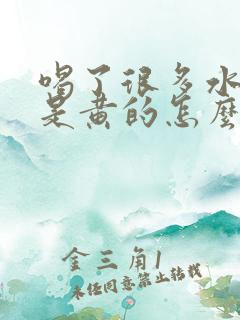 喝了很多水
是黄的怎麽
金三角1
未经同意禁止转载